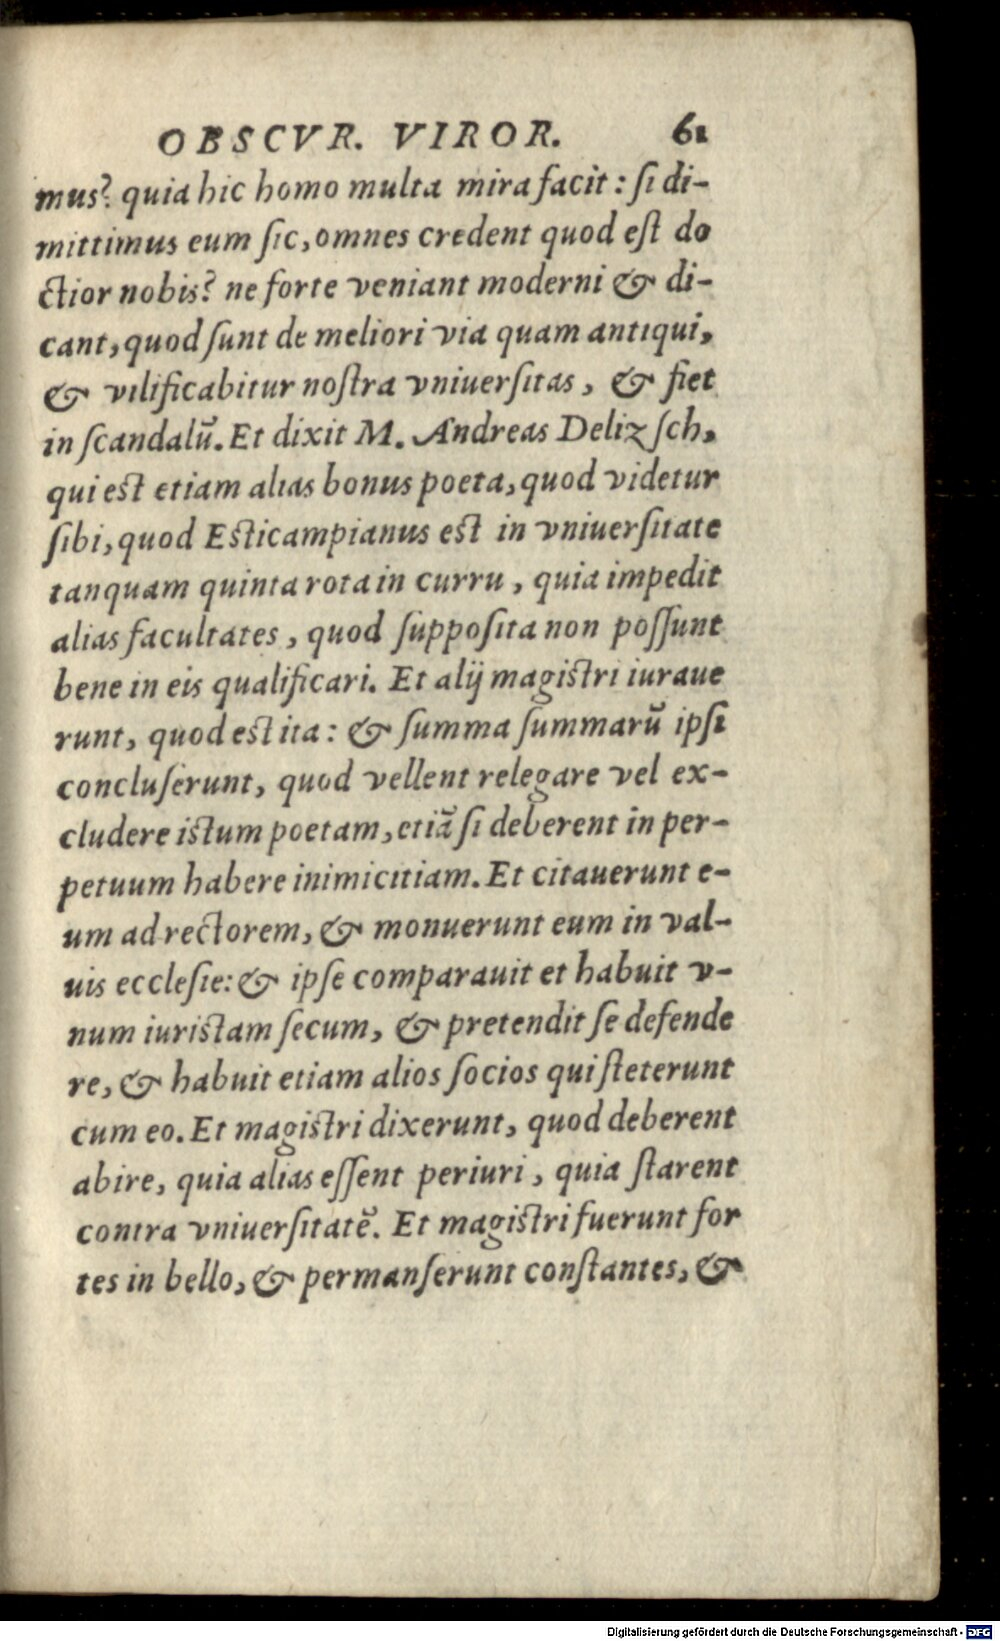 OBSCVR. VIROR. 61
mus? quia hic homo multa mira facit: ſi di-
mittimus eum ſic, omnes credent quod eſt do
ctior nobis? ne forte veniant moderni & di-
cant, quod ſunt de meliori via quam antiqui,
& vilificabitur noſtra vniuerſitas, & fiet
in ſcandalū. Et dixit M. Andreas Delizſch,
qui eſt etiam alias bonus poeta, quod videtur
ſibi, quod Eſticampianus eſt in vniuerſitate
tanquam quinta rota in curru, quia impedit
alias facultates, quod ſuppoſita non poſſunt
bene in eis qualificari. Et alij magiſtri iuraue
runt, quod eſt ita: & ſumma ſummarū ipſi
concluſerunt, quod vellent relegare vel ex-
cludere iſtum poetam, etiā ſi deberent in per-
petuum habere inimicitiam. Et citauerunt e-
um ad rectorem, & monuerunt eum in val-
uis eccleſie: & ipſe comparauit et habuit v-
num iuriſtam ſecum, & pretendit ſe defende
re, & habuit etiam alios ſocios qui ſteterunt
cum eo. Et magiſtri dixerunt, quod deberent
abire, quia alias eſſent periuri, quia ſtarent
contra vniuerſitatē. Et magiſtri fuerunt for
tes in bello, & permanſerunt conſtantes, &
Digitalisierung gefördert durch die Deutsche Forschungsgemeinschaft - DFG